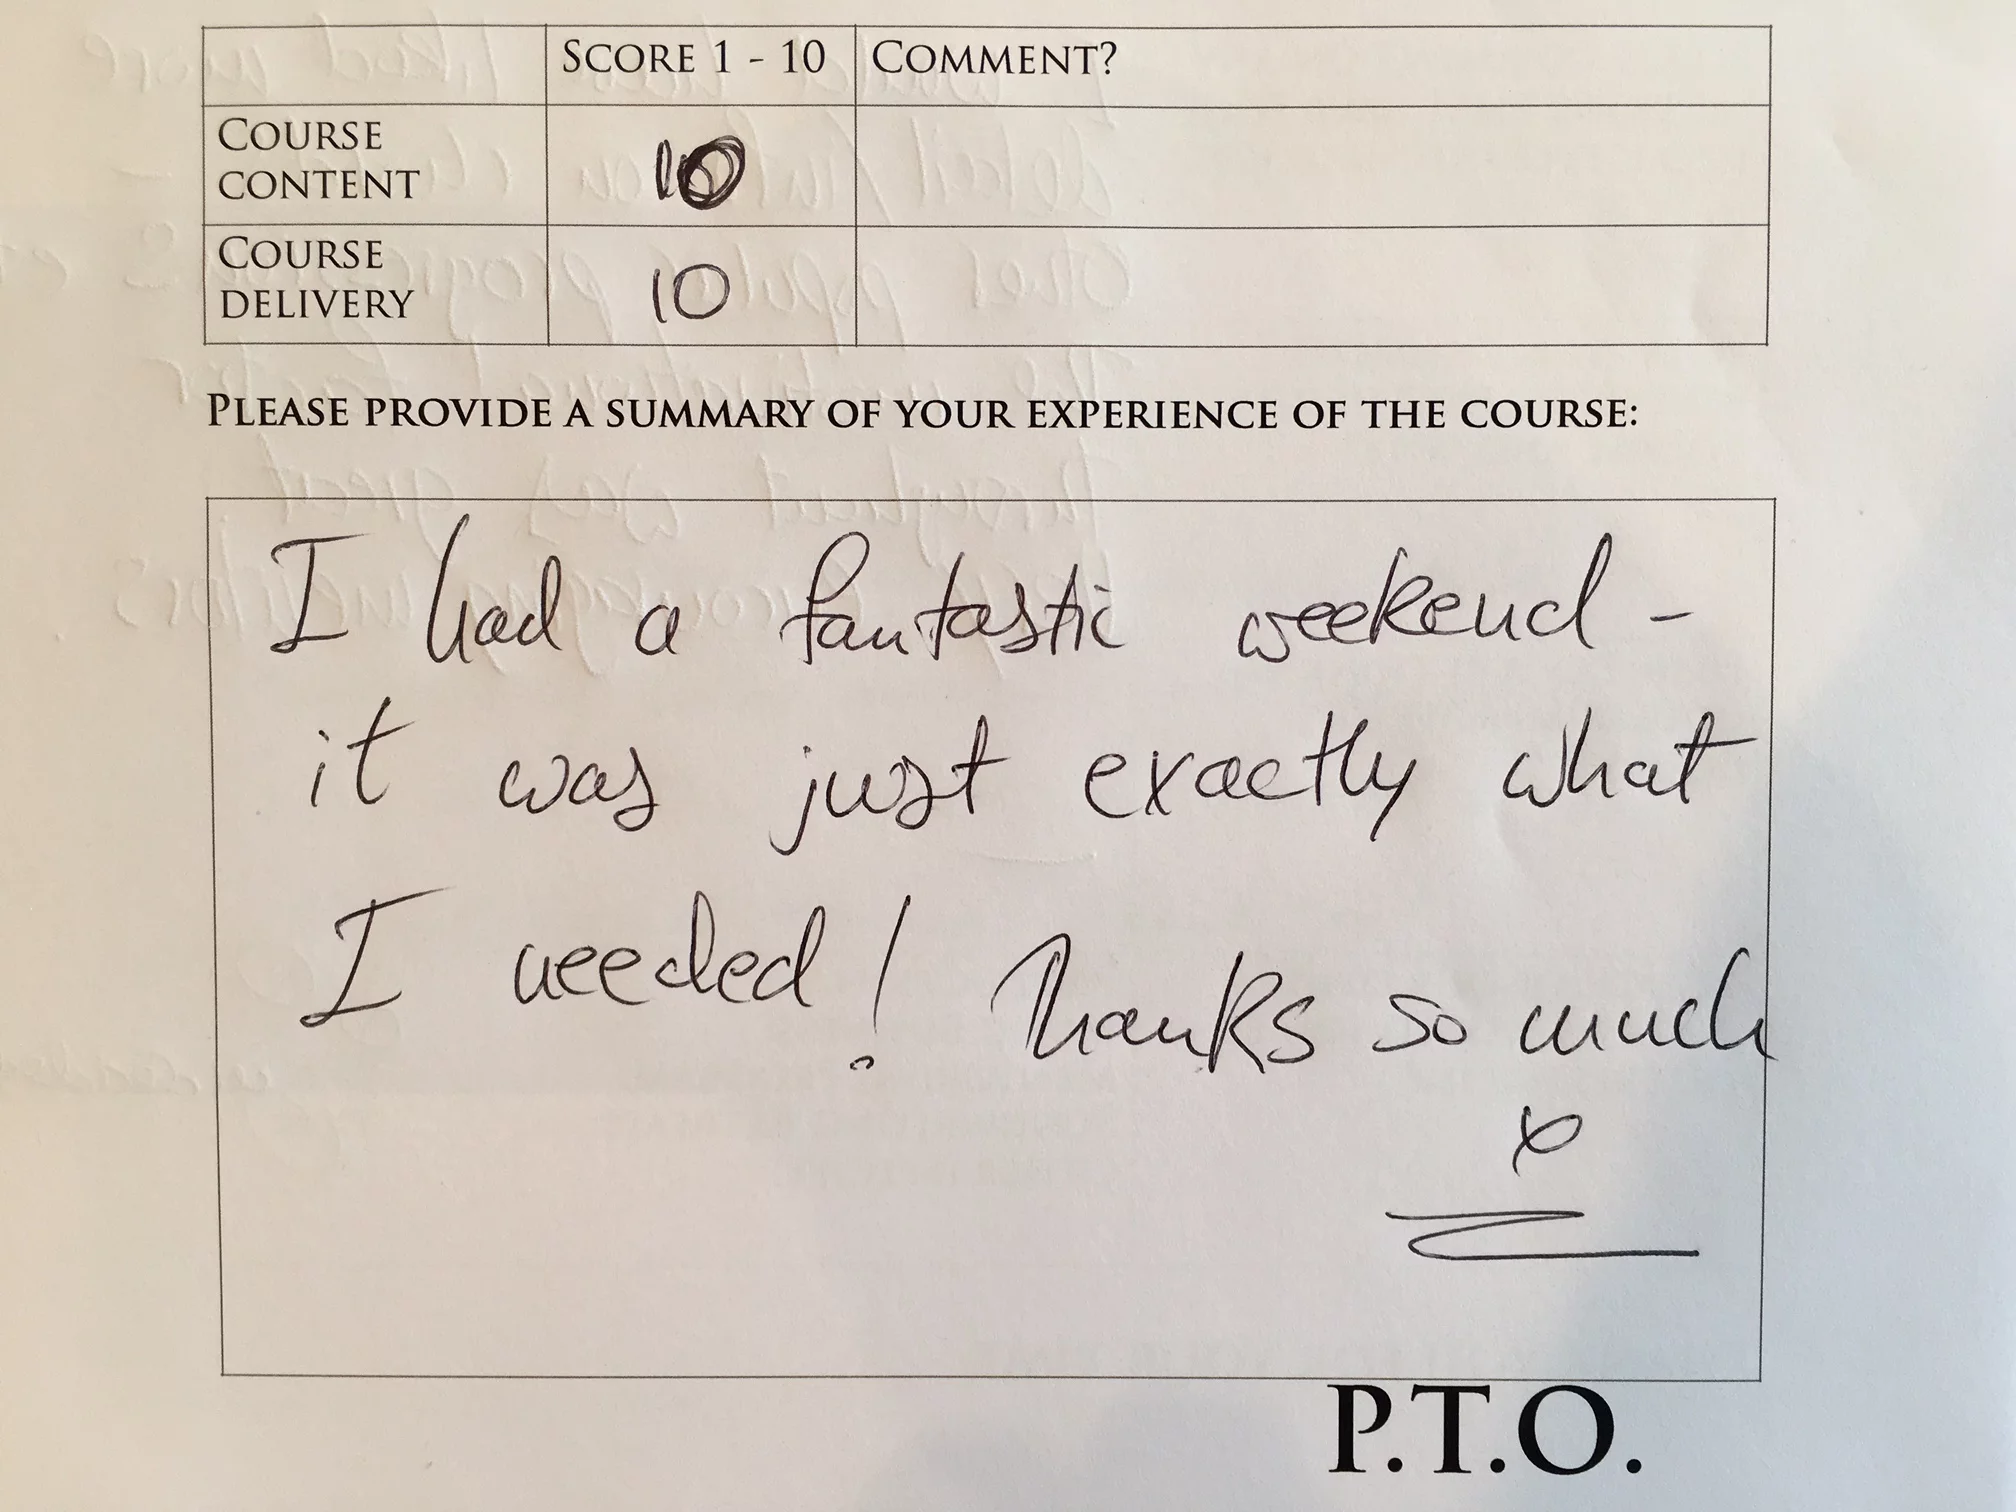 SCORE 1 - 10 COMMENT?
COURSE
CONTENT
10
COURSE
DELIVERY
10
PLEASE PROVIDE A SUMMARY OF YOUR EXPERIENCE OF THE COURSE:
I had a fantastic weekend -
it was just exactly what
I needed! Thanks so much
x
P.T.O.